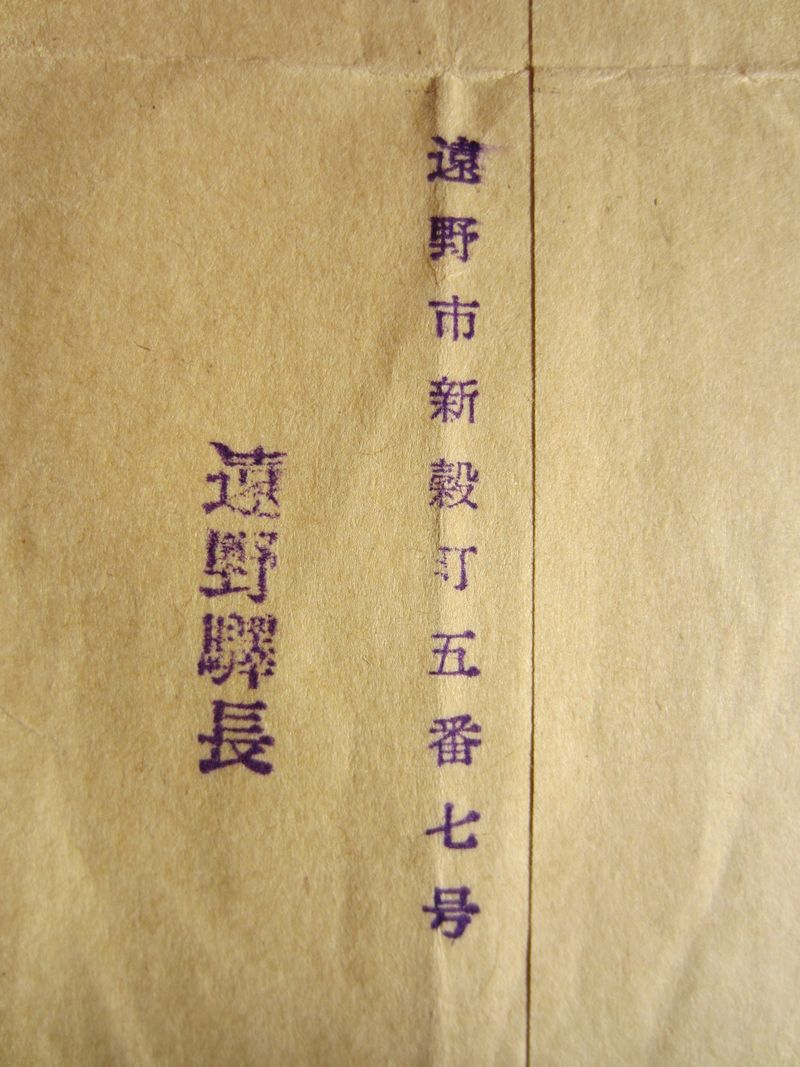 遠野市新穀町五番七号
遠野驛長